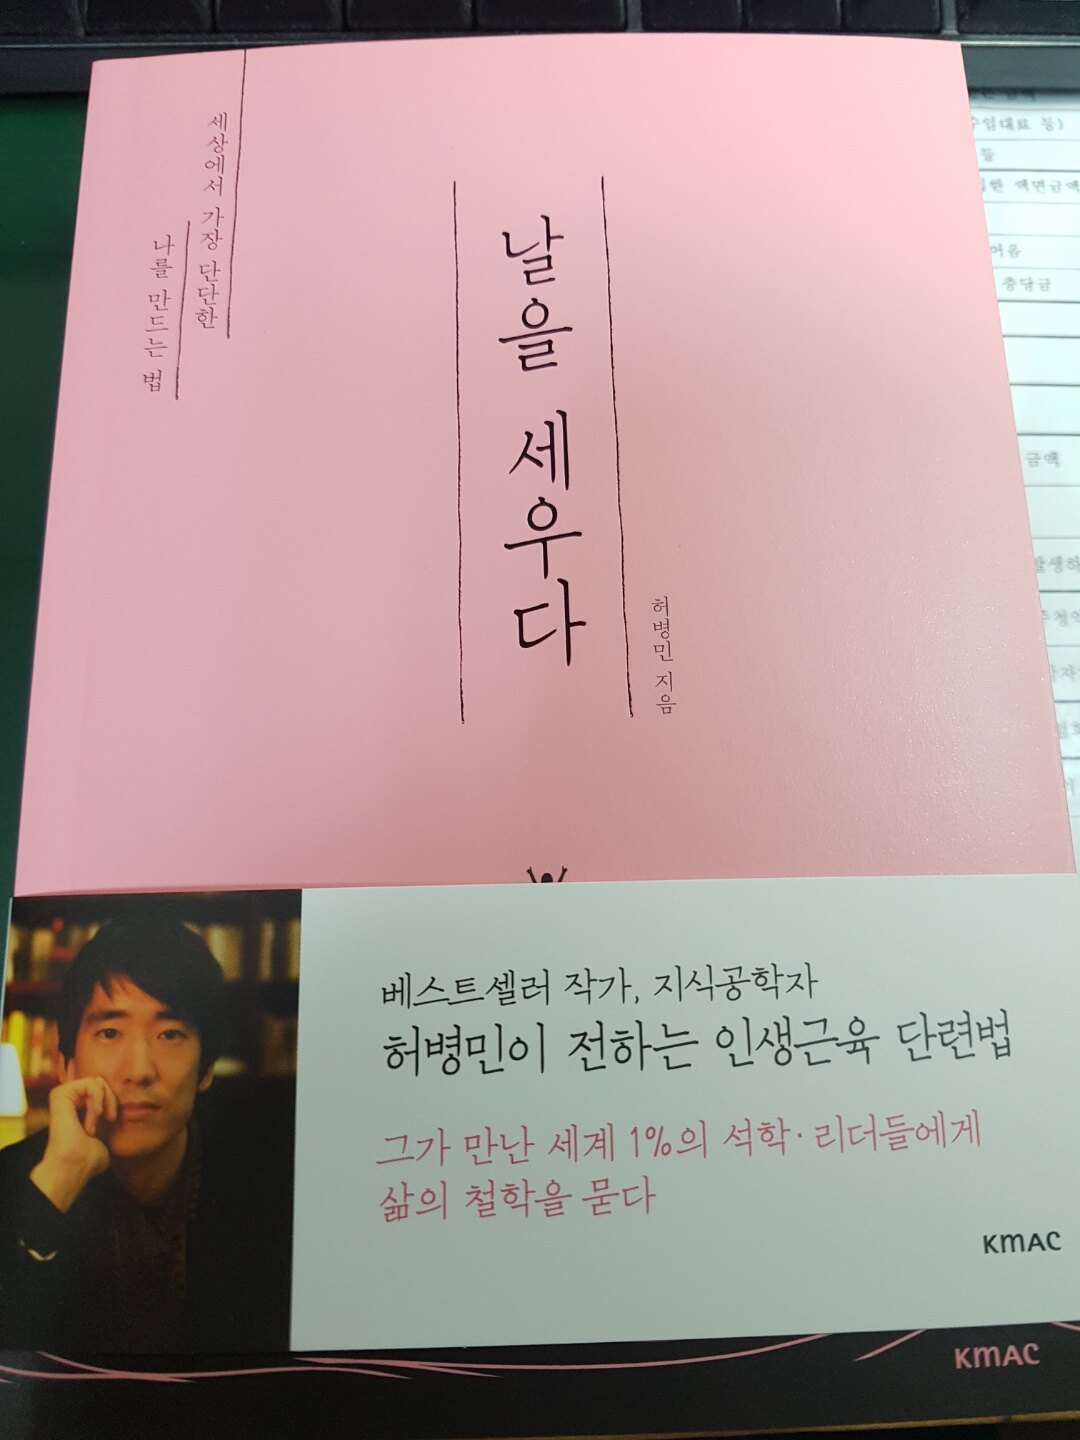 세상에서 가장 단단한
나를 만드는 법
날을 세우다
허병민 지음
베스트셀러 작가, 지식공학자
허병민이 전하는 인생근육 단련법
그가 만난 세계 1%의 석학·리더들에게
삶의 철학을 묻다
KMAC
KMAC
수입대료 등)
등
액면금액
어음
충당금
금액